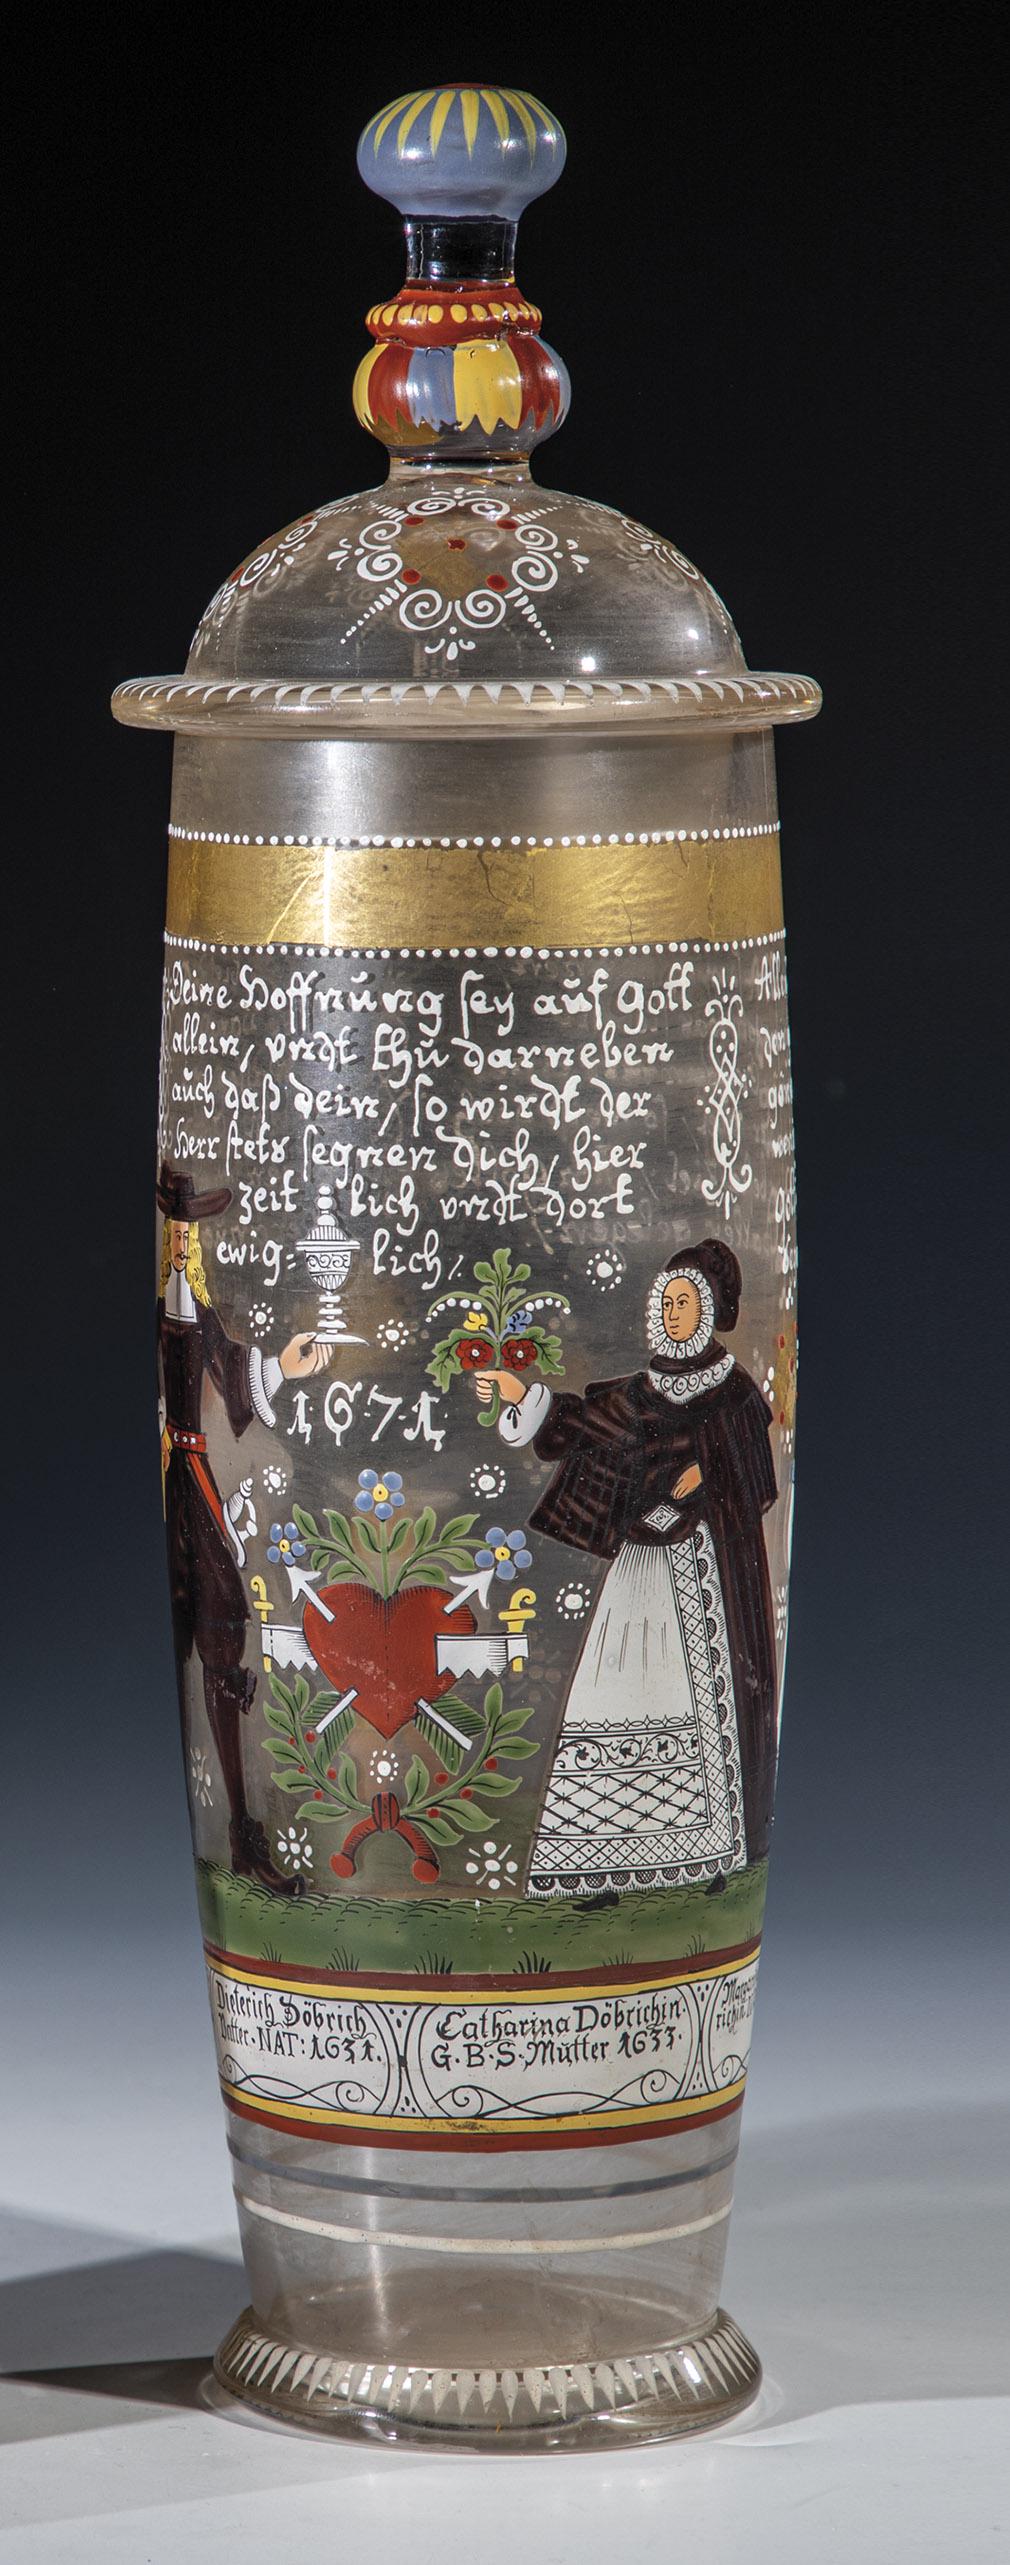 Deine Hoffnung sey auf Gott
allein, vndt thu darneben
auch daß dein, so wirdt der
Herr stets segnen dich, hier
zeit lich vndt dort
ewig= lich,
1671
Dieterich Döbrich
Vatter·NAT: 1631.
Catharina Döbrichin
G·B·S·Mutter 1633.